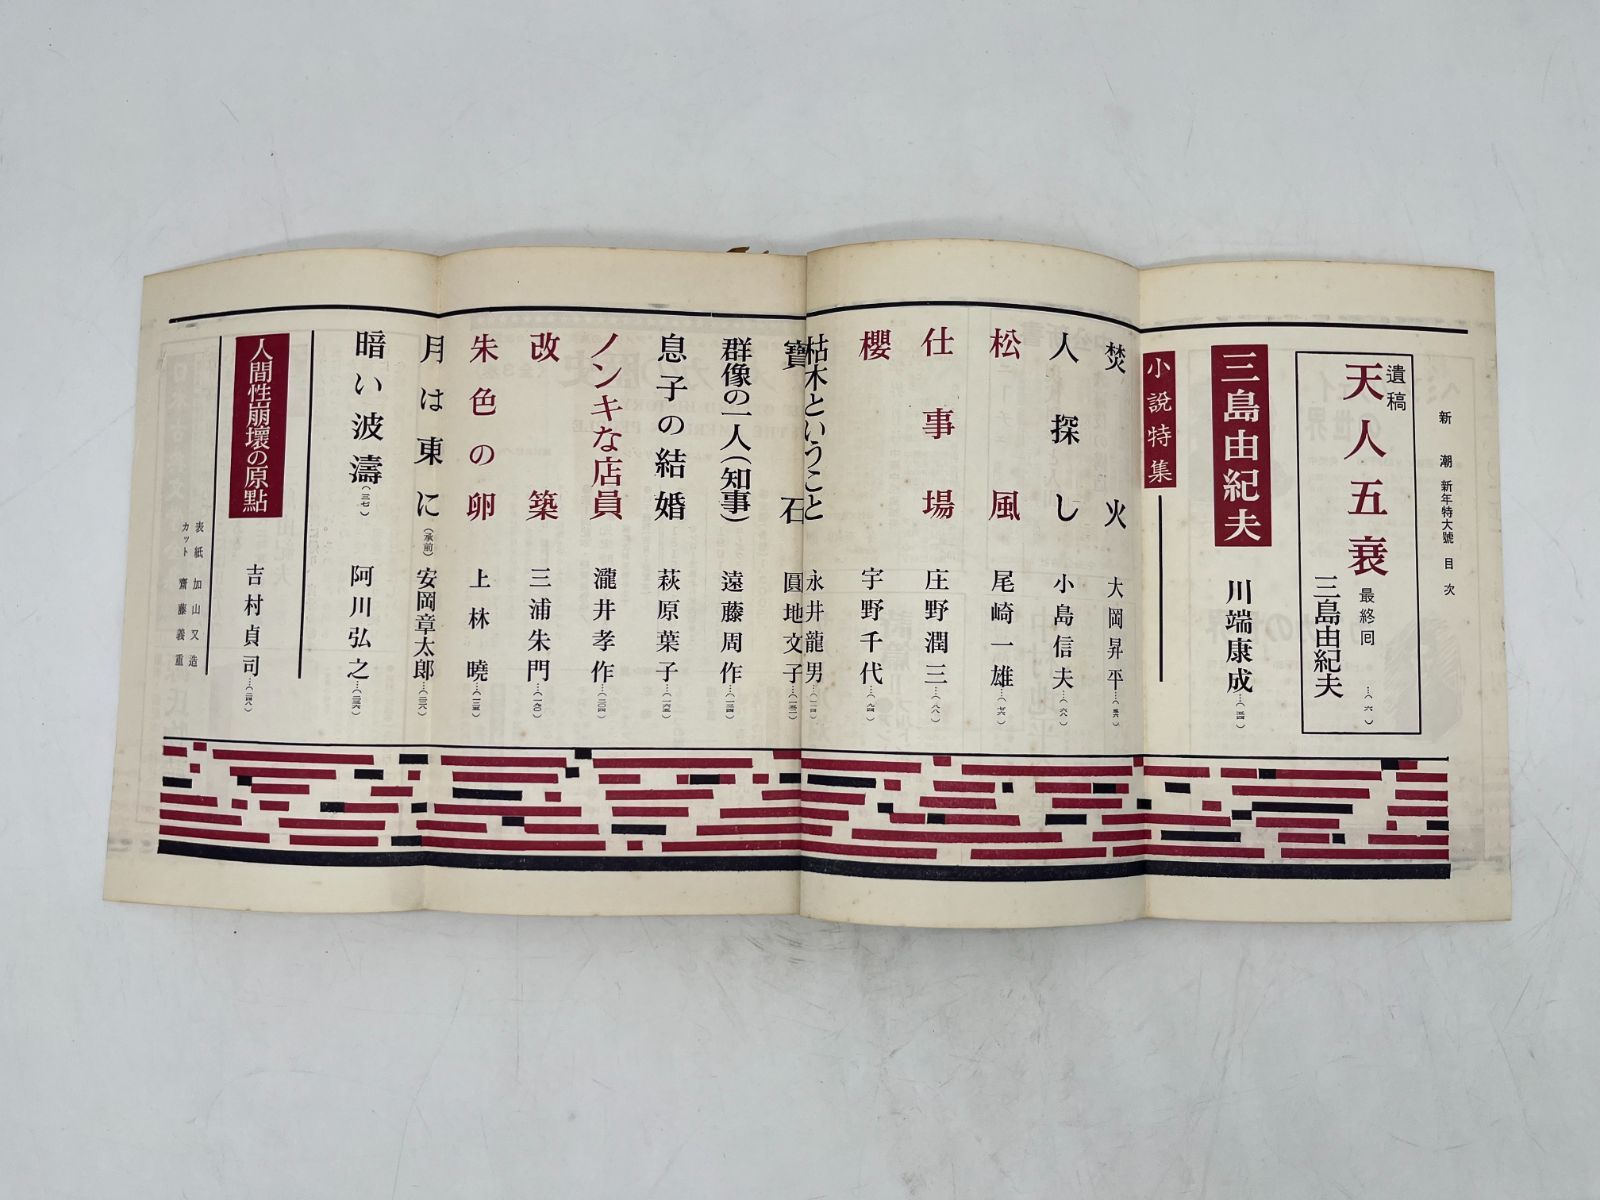 新潮 新年特大號 目次
遺稿
天人五衰 最終回
三島由紀夫 …(六)
三島由紀夫
川端康成
小説特集
焚火 大岡昇平
人探し 小島信夫…(六八)
松風 尾崎一雄…(七六)
仕事場 庄野潤三…(八八)
櫻 宇野千代…(九四)
枯木ということ 永井龍男
寶石 圓地文子
群像の一人(知事) 遠藤周作
息子の結婚 萩原葉子
ノンキな店員 瀧井孝作
改築 三浦朱門
朱色の卵 上林曉
月は東に(承前) 安岡章太郎
暗い波濤(三七) 阿川弘之
人間性崩壞の原點
吉村貞司
表紙 加山又造
カット 齋藤義重